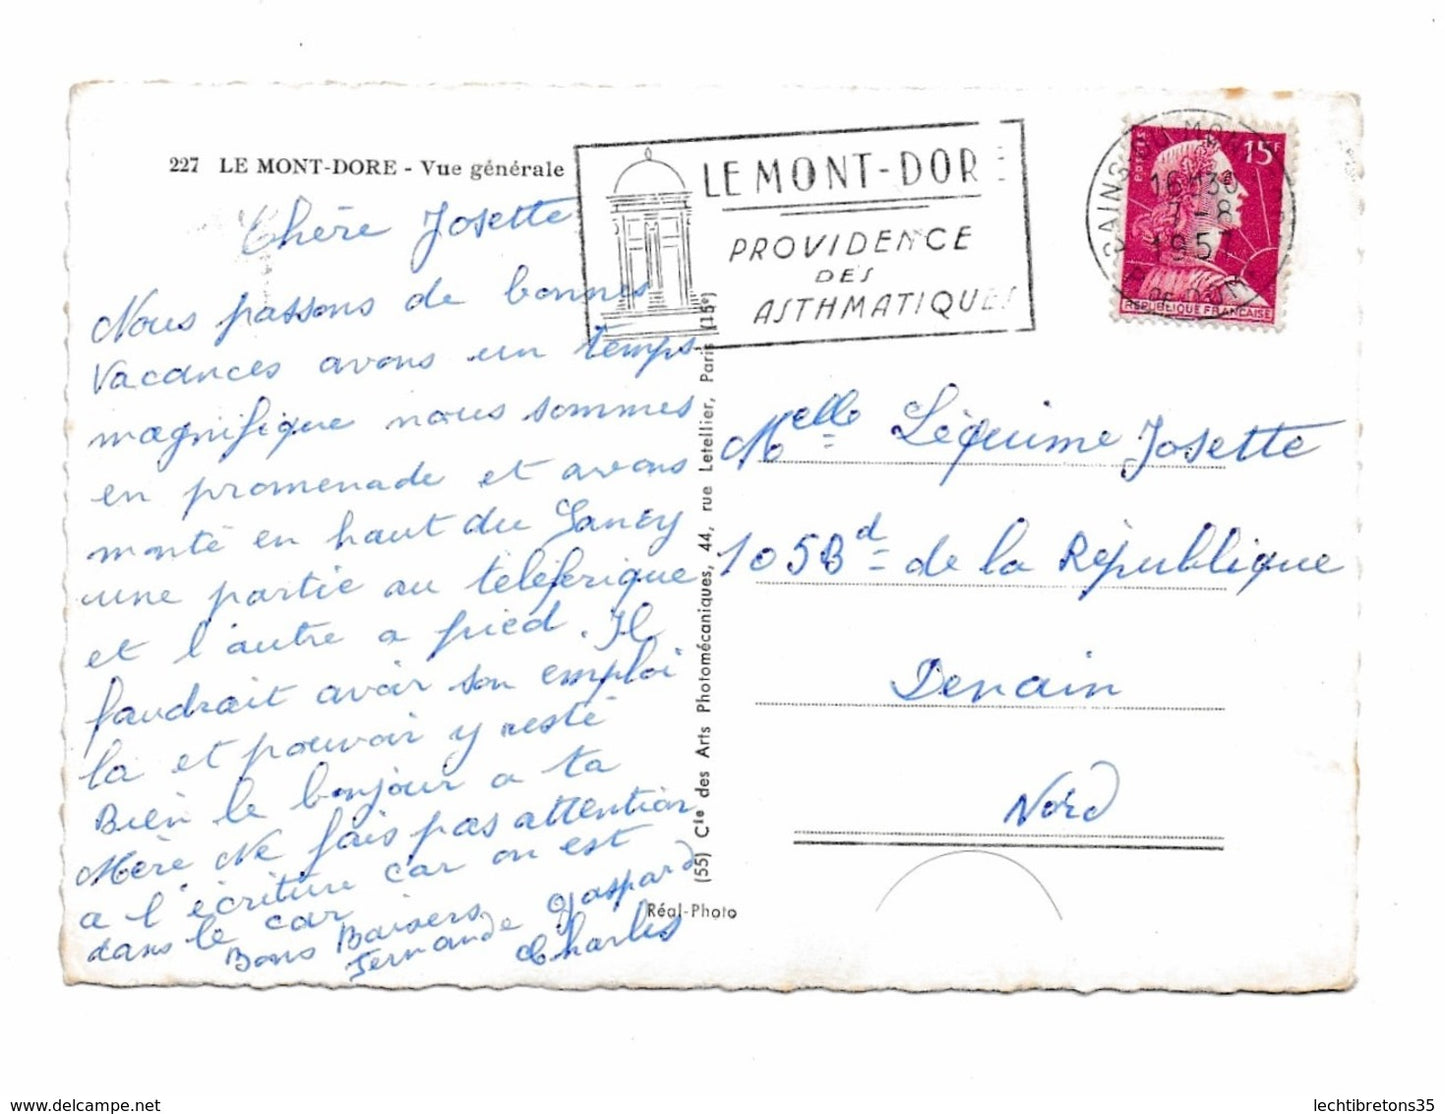 227 LE MONT-DORE - Vue générale
LE MONT-DORE
PROVIDENCE
DES
ASTHMATIQUES
15F
POSTES
16H30
7-8
1957
REPUBLIQUE FRANÇAISE
Chère Josette
Nous passons de bonnes
Vacances avons un temps
magnifique nous sommes
en promenade et avons
monté en haut du Sancy
une partie au téléférique
et l'autre a pied. Il
faudrait avoir son emploi
la et pouvoir y resté
Bien le bonjour a ta
Mère Ne fais pas attention
a l'écriture car on est
dans le car
Bons Baisers
Fernande Gaspard
Charles
(55) Cie des Arts Photomécaniques, 44, rue Letellier, Paris (15e)
Réal-Photo
Melle Léquime Josette
105 Bd de la République
Denain
Nord
Chère Josette - photos recto / verso
lechtibretons35